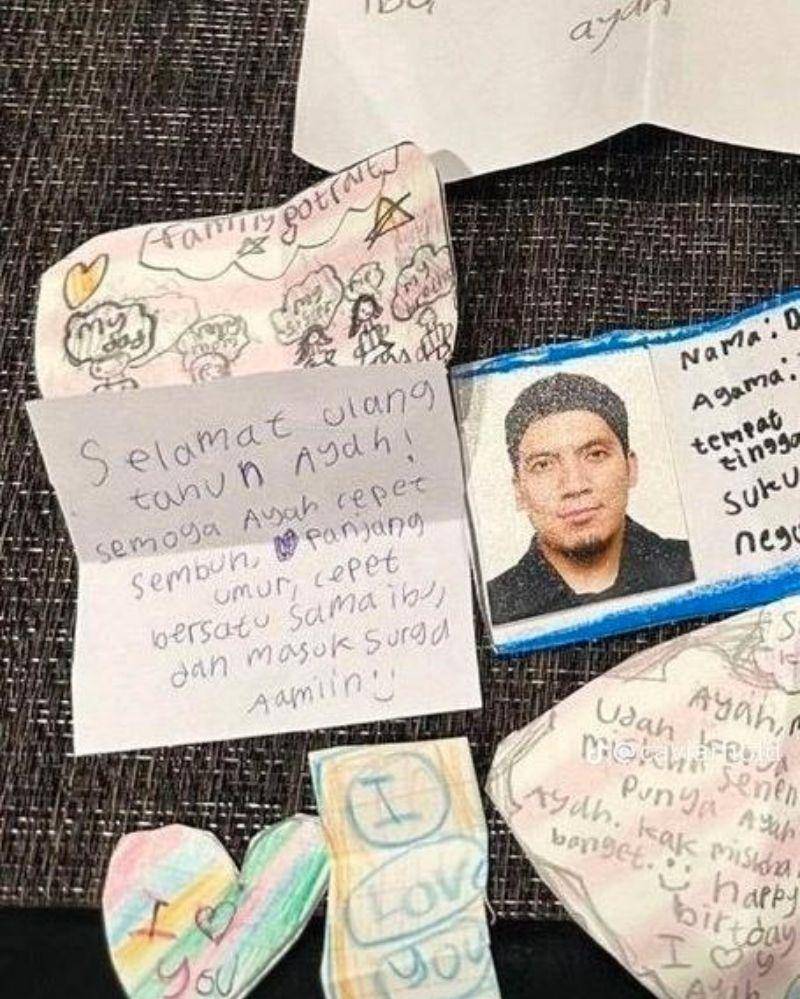 Ibu
ayah
family potrait
My
Papa
My
sister
My
Selamat ulang
tahun Ayah!
semoga Ayah cepet
sembuh, panjang
umur, cepet
bersatu sama ibu,
dan masuk surga
Aamiin
Nama: D
Agama:
tempat
tingga
suku
neg
Ayah,
udah
senen
punya Ayah
Ayah. kak miskha
banget.
happy
birtday
I y
Ayah
I
you
I
Love
you